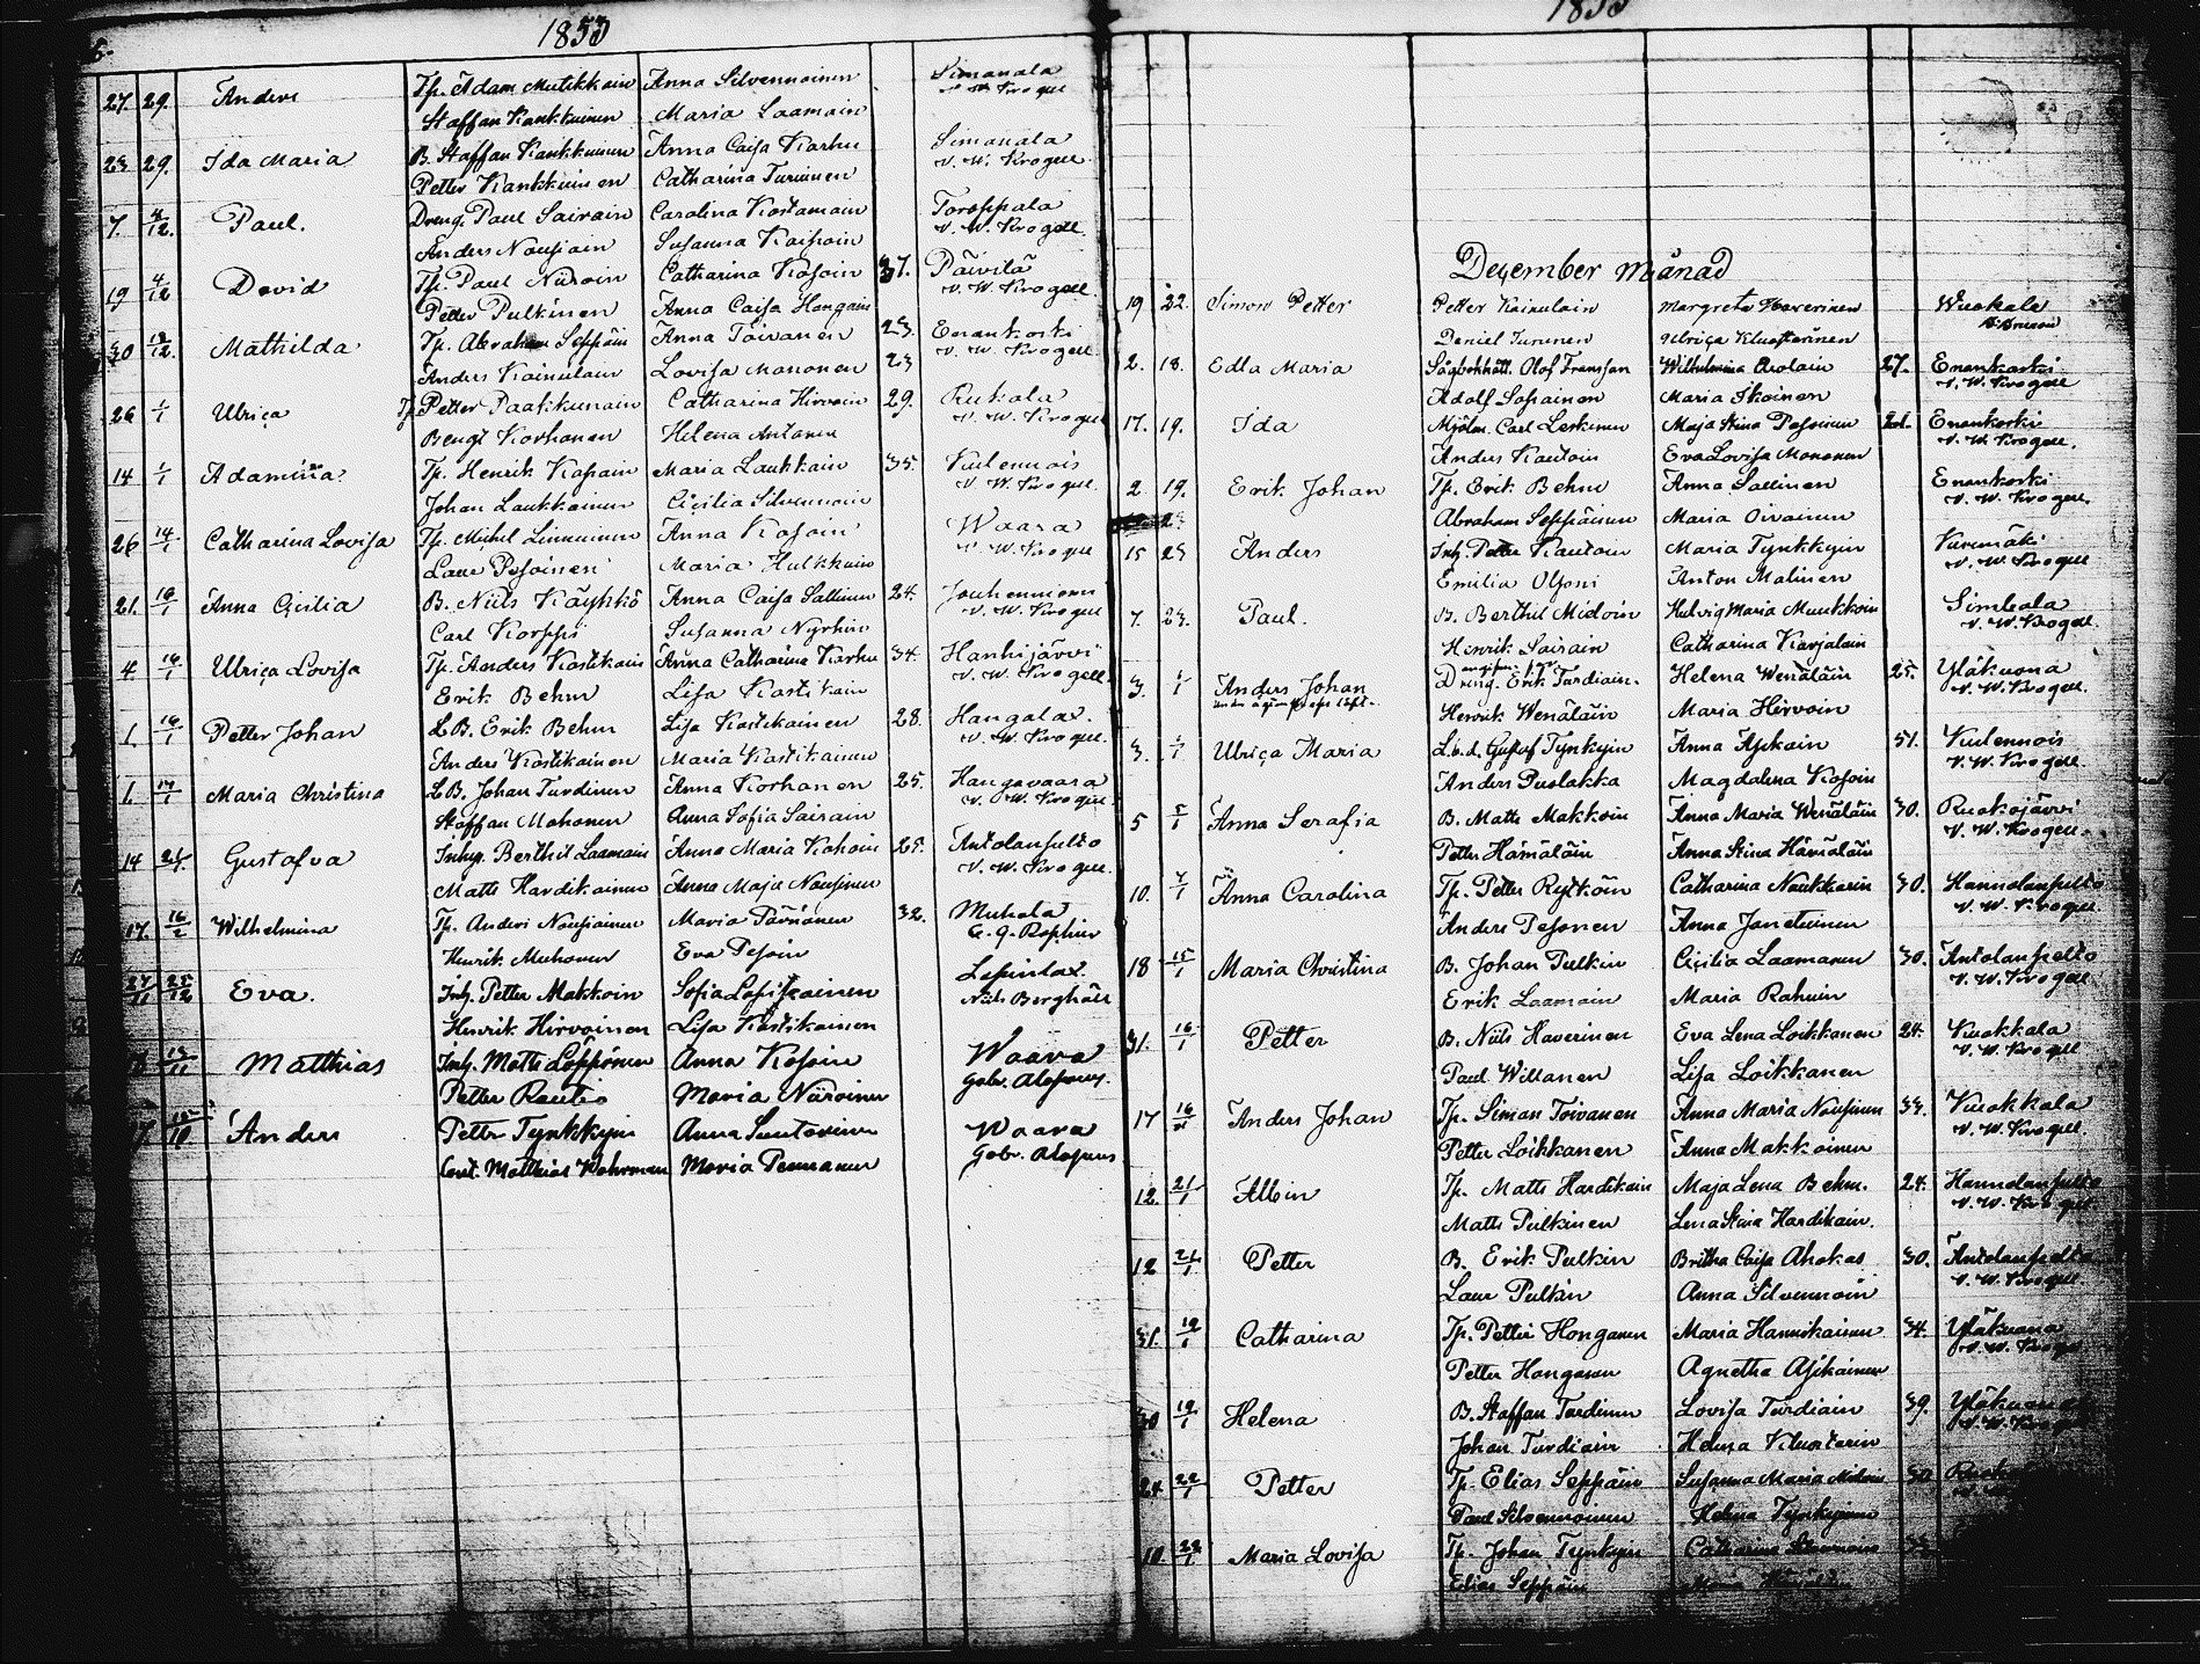 1853
27. 29. Anders Tp. Adam Mutikkain Anna Silvennoinen Simanala
V. W. Krogell
Staffan Kankkuinen Maria Laamain
23 29. Ida Maria B. Staffan Kankkuinen Anna Caisa Karhu Simanala
V. W. Krogell
Petter Kankkuinen Catharina Turuinen
7. 4/12. Paul. Dreng. Paul Sairain Carolina Kostamain Toroppala
V. W. Krogell.
Anders Nousiain Susanna Kaipain
19 4/12 David Tp. Paul Niiroin Catharina Kosoin 37. Päivilä
V. W. Krogell.
Petter Pulkinen Anna Caisa Hongain
30 12/12. Mathilda Tp. Abraham Seppäin Anna Toivanen 23. Enonkoski
V. W. Krogell.
Anders Kainulain Lovisa Mononen 23
26 1/1 Ulrica Tp. Petter Paakkunain Catharina Hirvoin 29. Rukala
V. W. Krogell
Bengt Korhonen Helena Antonen
14 1/1 Adamina Tp. Henrik Kosain Maria Laukkain 35. Kulennois
V. W. Krogell.
Johan Laukkainen Cicilia Silvennoin
26 14/1 Catharina Lovisa Tp. Michel Linnuinen Anna Kosoin Waara
V. W. Krogell
Laur Pesoinen Maria Hulkkuin
21. 16/1 Anna Cicilia B. Niils Käyhkö Anna Caisa Sallinen 24. Jouhenniemi
V. W. Krogell
Carl Korppi Susanna Nyrhin
4. 16/1 Ulrica Lovisa Tp. Anders Kostikain Anna Catharina Karhu 34. Hanhijärvi
V. W. Krogell
Erik Behm Lisa Kostikain
1. 16/1 Petter Johan LB. Erik Behm Lisa Kostikainen 28. Hangalax.
V. W. Krogell.
Anders Kostikainen Maria Kostikainen
1. 17/1 Maria Christina LB. Johan Turdinen Anna Korhonen 25. Hangavaara
V. W. Krogell.
Staffan Mohonen Anna Sofia Sairain
14 21/1. Gustafva Inhys. Berthil Laamain Anna Maria Kohoin 25. Antolanpelto
V. W. Krogell.
Matts Hardikainen Anna Maja Nousinen
17. 16/2 Wilhelmina Tp. Anders Nousiainen Maria Pärnänen 32. Muhola
Henrik Muhonen Eva Pesoin
27/11 25/12 Eva. Inh. Petter Makkoin Sofia Lapitkainen
Niils Berghäll
Henrik Hirvoinen Lisa Kostikainen
Matthias Inh. Matts Löppönen Anna Kosoin Waara
Gabr. Alopaeus.
Petter Rautio Maria Niiroinen
Anders Petter Tynkkyin Anna Suutarinen Waara
Gabr. Alopaeus
Matthias Kohrman Maria Pennanen
1853
December Månad
19 22. Simon Petter Petter Kainulain Margreta Haverinen Wuokala
Daniel Turunen Ulrica Kluostarinen
2. 18. Edla Maria Olof Fransson Wilhelmina Arolain 27. Enonkoski
V. W. Krogell
Adolf Sapainen Maria Ikoinen
17. 19. Ida Mjöln. Carl Leskinen Maja Stina Pesoinen 21. Enonkoski
V. W. Krogell.
Anders Kautoin Eva Lovisa Mononen
2. 19. Erik Johan Tp. Erik Behm Anna Sallinen Enonkoski
V. W. Krogell.
Abraham Seppäinen Maria Oivainen
15 23 Anders Inh. Petter Kautoin Maria Tynkkyin Vuremäki
V. W. Krogell
Emilia Olsoni Anton Malinen
7. 23. Paul. B. Berthil Midoin Hedvig Maria Muukkoin Simbala
V. W. Krogell.
Henrik Sairain Catharina Karjalain
3. 1/1 Anders Johan Dreng. Erik Turdiain. Helena Wenäläin 25. Yläkuona
V. W. Krogell.
Henrik Wenäläin Maria Hirvoin
3. 1/1 Ulrica Maria L.b.d. Gustaf Tynkyin Anna Asikain 31. Kulennois
V. W. Krogell.
Anders Puolakka Magdalena Kosoin
5 5/1 Anna Serafia B. Matts Makkoin Anna Maria Wenäläin 30. Ruokojärvi
V. W. Krogell.
Petter Hämäläin Anna Stina Hämäläin
10. 7/1 Anna Carolina Tp. Petter Rytköin Catharina Naukkarin 30. Hannolanpelto
V. W. Krogell.
Anders Pesonen Anna Janetuinen
18 15/1 Maria Christina B. Johan Pulkin Cicilia Laamanen 30. Antolanpelto
V. W. Krogell
Erik Laamain Maria Rahuin
31. 16/1 Petter B. Niils Haverinen Eva Lena Loikkanen 24. Vuokkala
V. W. Krogell
Paul Willanen Lisa Loikkanen
17 16/1 Anders Johan Tp. Simon Toivanen Anna Maria Nousinen 33. Vuokkala
V. W. Krogell.
Petter Loikkanen Anna Makkoinen
12. 21/1 Albin Tp. Matts Hardikain Maja Lena Behm. 24. Hannolanpelto
V. W. Krogell
Matts Pulkinen Lena Stina Hardikain.
12 21/1 Petter B. Erik Pulkin Britha Caisa Ahokas 30. Antolanpelto
V. W. Krogell
Laur Pulkin Anna Silvennoin
31. 19/1 Catharina Tp. Petter Honganen Maria Hannikainen 34. Yläkuona
V. W. Krogell
Petter Honganen Agnetha Asikainen
30 19/1 Helena B. Staffan Turdinen Lovisa Turdiain 39. Yläkuona
V. W. Krogell
Johan Turdiain Helena Kluostarin
24 22/1 Petter Tp. Elias Seppäin Susanna Maria Midoin 30
Paul Silvennoinen Helena Tynkkyinen
10. 22/1 Maria Lovisa Tp. Johan Tynkyin Catharina
Elias Seppäin Maria